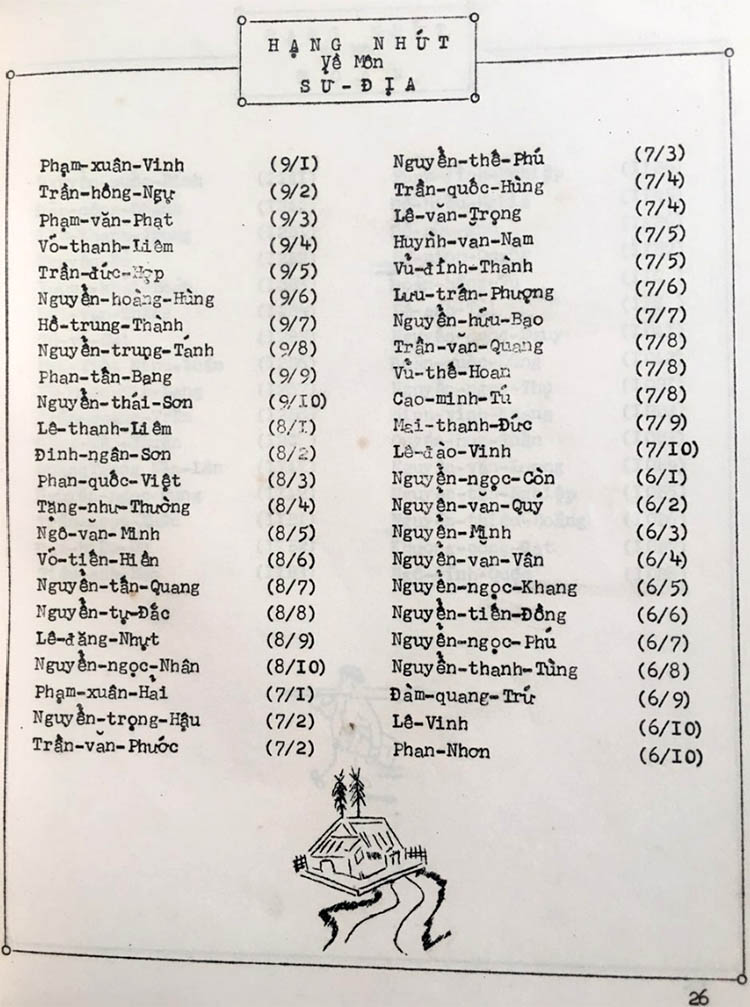 HẠNG NHỨT
Về Môn
SỬ-ĐỊA
Phạm-xuân-Vinh (9/I)
Trần-hồng-Ngự (9/2)
Phạm-văn-Phạt (9/3)
Võ-thanh-Liêm (9/4)
Trần-đức-Hợp (9/5)
Nguyễn-hoàng-Hùng (9/6)
Hồ-trung-Thành (9/7)
Nguyễn-trung-Tánh (9/8)
Phan-tấn-Bạng (9/9)
Nguyễn-thái-Sơn (9/IO)
Lê-thanh-Liêm (8/I)
Đinh-ngân-Sơn (8/2)
Phan-quốc-Việt (8/3)
Tăng-như-Thường (8/4)
Ngô-văn-Minh (8/5)
Võ-tiến-Hiền (8/6)
Nguyễn-tấn-Quang (8/7)
Nguyễn-tự-Đắc (8/8)
Lê-đăng-Nhựt (8/9)
Nguyễn-ngọc-Nhân (8/IO)
Phạm-xuân-Hải (7/I)
Nguyễn-trọng-Hậu (7/2)
Trần-văn-Phước (7/2)
Nguyễn-thế-Phú (7/3)
Trần-quốc-Hùng (7/4)
Lê-văn-Trọng (7/4)
Huỳnh-van-Nam (7/5)
Vũ-đình-Thành (7/5)
Lưu-trấn-Phượng (7/6)
Nguyễn-hữu-Bạo (7/7)
Trần-văn-Quang (7/8)
Vũ-thế-Hoan (7/8)
Cao-minh-Tú (7/8)
Mai-thanh-Đức (7/9)
Lê-đao-Vinh (7/IO)
Nguyễn-ngọc-Còn (6/I)
Nguyễn-văn-Quý (6/2)
Nguyễn-Minh (6/3)
Nguyễn-van-Vân (6/4)
Nguyễn-ngọc-Khang (6/5)
Nguyễn-tiến-Đồng (6/6)
Nguyễn-ngọc-Phú (6/7)
Nguyễn-thanh-Tùng (6/8)
Đàm-quang-Trứ (6/9)
Lê-Vinh (6/IO)
Phan-Nhơn (6/IO)
26